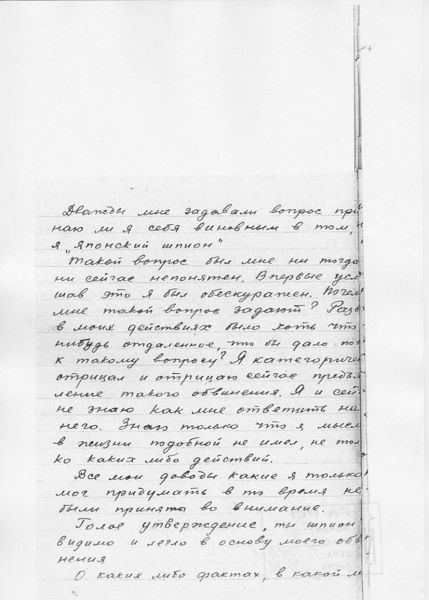 Дважды мне задавали вопрос при
наю ли я себя виновным в том,
я „Японский шпион"
Такой вопрос был мне ни тогда
ни сейчас непонятен. Впервые усл
шав это я был обескуражен. Почем
мне такой вопрос задают? Разв
в моих действиях было хоть что-
нибудь отдаленное, что бы дало по
к такому вопросу? Я категориче
отрицал и отрицаю сейчас предъя
ление такого обвинения. Я и сей
не знаю как мне ответить на
него. Знаю только что я мысл
в жизни подобной не имел, не тол
ко каких либо действий.
Все мои доводы какие я только
мог придумать в то время не
были принято во внимание.
Голое утверждение, ты шпион
видимо и легло в основу моего обв
нения
О каких либо фактах, в какой